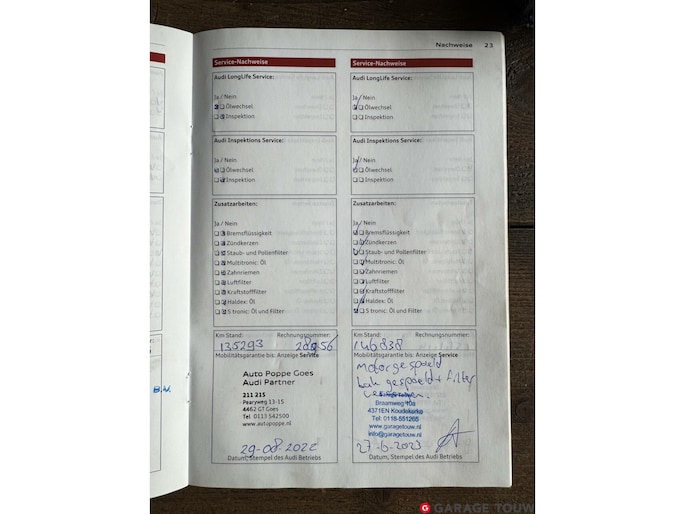 Nachweise 23
Service-Nachweise
Audi LongLife Service:
Ja / Nein
Ölwechsel
Inspektion
Audi Inspektions Service:
Ja / Nein
Ölwechsel
Inspektion
Zusatzarbeiten:
Ja / Nein
Bremsflüssigkeit
Zündkerzen
Staub- und Pollenfilter
Multitronic: Öl
Zahnriemen
Luftfilter
Kraftstofffilter
Haldex: Öl
S tronic: Öl und Filter
Km Stand: Rechnungsnummer:
135293
Mobilitätsgarantie bis: Anzeige Service
Auto Poppe Goes
Audi Partner
211 215
Pearyweg 13-15
4462 GT Goes
Tel 0113 542500
www.autopoppe.nl
29-08-2022
Datum, Stempel des Audi Betriebs
Service-Nachweise
Audi LongLife Service:
Ja / Nein
Ölwechsel
Inspektion
Audi Inspektions Service:
Ja / Nein
Ölwechsel
Inspektion
Zusatzarbeiten:
Ja / Nein
Bremsflüssigkeit
Zündkerzen
Staub- und Pollenfilter
Multitronic: Öl
Zahnriemen
Luftfilter
Kraftstofffilter
Haldex: Öl
S tronic: Öl und Filter
Km Stand: Rechnungsnummer:
146838
Mobilitätsgarantie bis: Anzeige Service
Motor gespoeld
bak gespoeld + filter
Braamweg 10a
4371EN Koudekerke
Tel: 0118-551265
www.garagetouw.nl
info@garagetouw.nl
27-6-2023
Datum, Stempel des Audi Betriebs
GARAGE TOUW